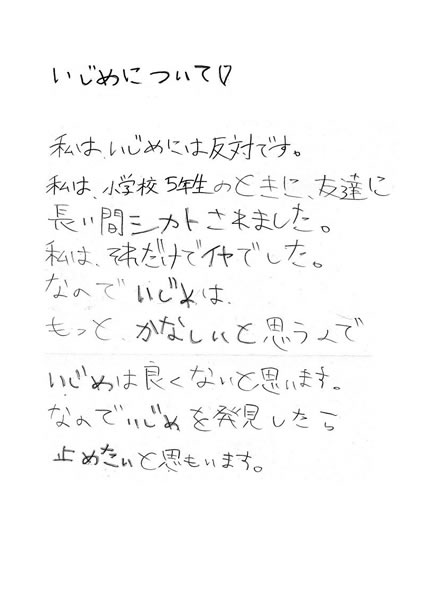 いじめについて♡
私は、いじめには反対です。
私は、小学校5年生のときに、友達に
長い間シカトされました。
私は、それだけでイヤでした。
なのでいじめは、
もっと、かなしいと思うんで
いじめは良くないと思います。
なのでいじめを発見したら
止めたいと思もいます。